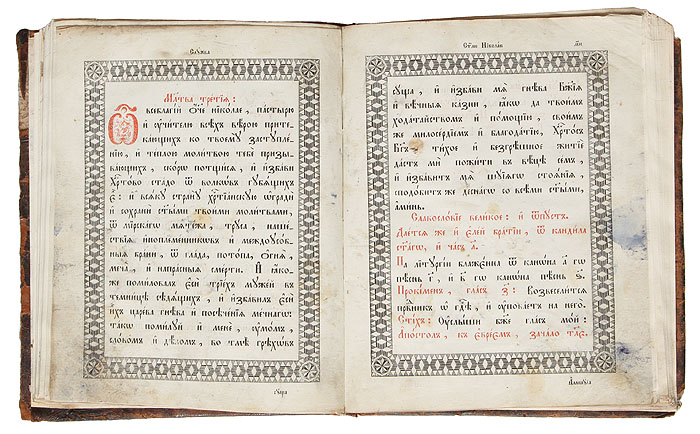 Слꙋжба
Мл҃тва третїѧ :
Ѽ всеблагїй ѻ҃че нїколае , пастырю
и ᲂу҆чителю всѣхъ вѣрою прите-
кающихъ ко твоемꙋ застꙋпле-
нїю , и теплою молитвою тебѧ призы-
вающихъ , скорѡ потщисѧ , и избави
Хрⷭ҇тово стадо ѿ волкѡвъ гꙋбѧщихъ
є҆ : и всѧкꙋ странꙋ хрⷭ҇тїанскꙋю ѡгради
и сохрани ст҃ыми твоими молитвами ,
ѿ мїрскагѡ мѧтежа , трꙋса , наше-
ствїѧ иноплеменникѡвъ и междоꙋсоб-
ныѧ брани , ѿ глада , потопа , ѻгнѧ ,
меча , и напрасныѧ смерти . И ꙗко-
же помиловалъ є҆сѝ трїхъ мꙋжей въ
темницѣ сѣдѧщихъ , и избавилъ є҆сѝ
ихъ царева гнѣва и посѣченїѧ мечнагѡ :
такѡ помилꙋй и мене , ᲂу҆момъ ,
словомъ и дѣломъ , во тмѣ грѣхѡвъ
сꙋща
Ст҃омꙋ Нїколаю
сꙋща , и избави мѧ гнѣва Бж҃їѧ
и вѣчныѧ казни , ꙗкѡ да твоимъ
ходатайствомъ и помощїю , своимъ
же милосердїемъ и благодатїю , Хрⷭ҇тосъ
Бг҃ъ , тихое и безгрѣшное житїе
дастъ ми пожити въ вѣцѣ семъ ,
и избавитъ мѧ шꙋїѧгѡ стоѧнїѧ ,
сподобитъ же деснагѡ со всѣми ст҃ыми ,
аминь .
Славословїе великое : и ѿпꙋстъ .
Даетсѧ же и є҆лей братїи , ѿ кандила
ст҃агѡ , и часъ а҃ .
На лїтꙋргїи блажєнна ѿ канѡна а҃ гѡ
пѣснь г҃ , и в҃ гѡ канѡна пѣснь ѕ҃ .
Прокїменъ , гласъ з҃ : Возвеселитсѧ
првⷣникъ ѡ гдⷭ҇ѣ , и ᲂу҆поваетъ на него .
Стїхъ : Оу҆слыши бж҃е гласъ мой :
Апостолъ , къ є҆врєємъ , зачало тл҃є .
Аллилꙋїа